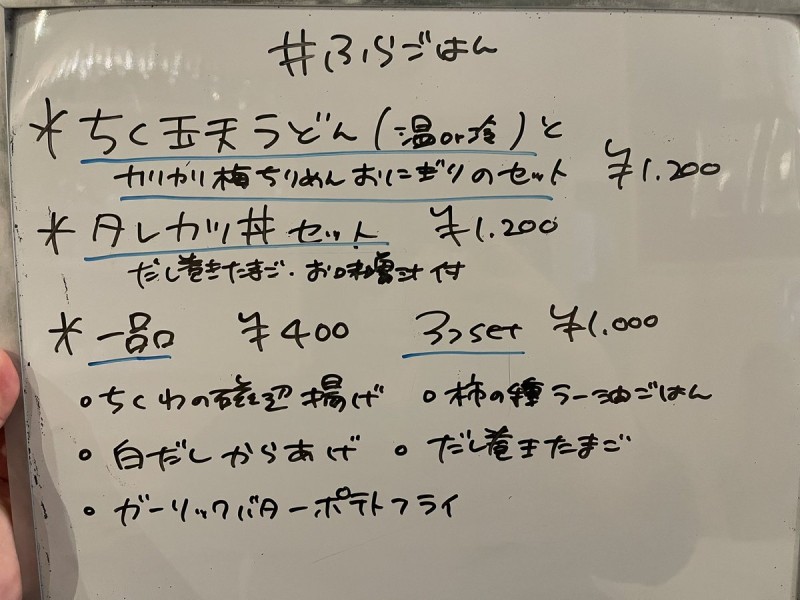 #ふらごはん
*ちく玉天うどん(温or冷)と
カリカリ梅ちりめんおにぎりのセット ¥1.200
*タレカツ丼セット ¥1.200
だし巻きたまご・お味噌汁付
*一品 ¥400 3つset ¥1.000
・ちくわの磯辺揚げ ・柿の種ラー油ごはん
・白だしからあげ ・だし巻きたまご
・ガーリックバターポテトフライ